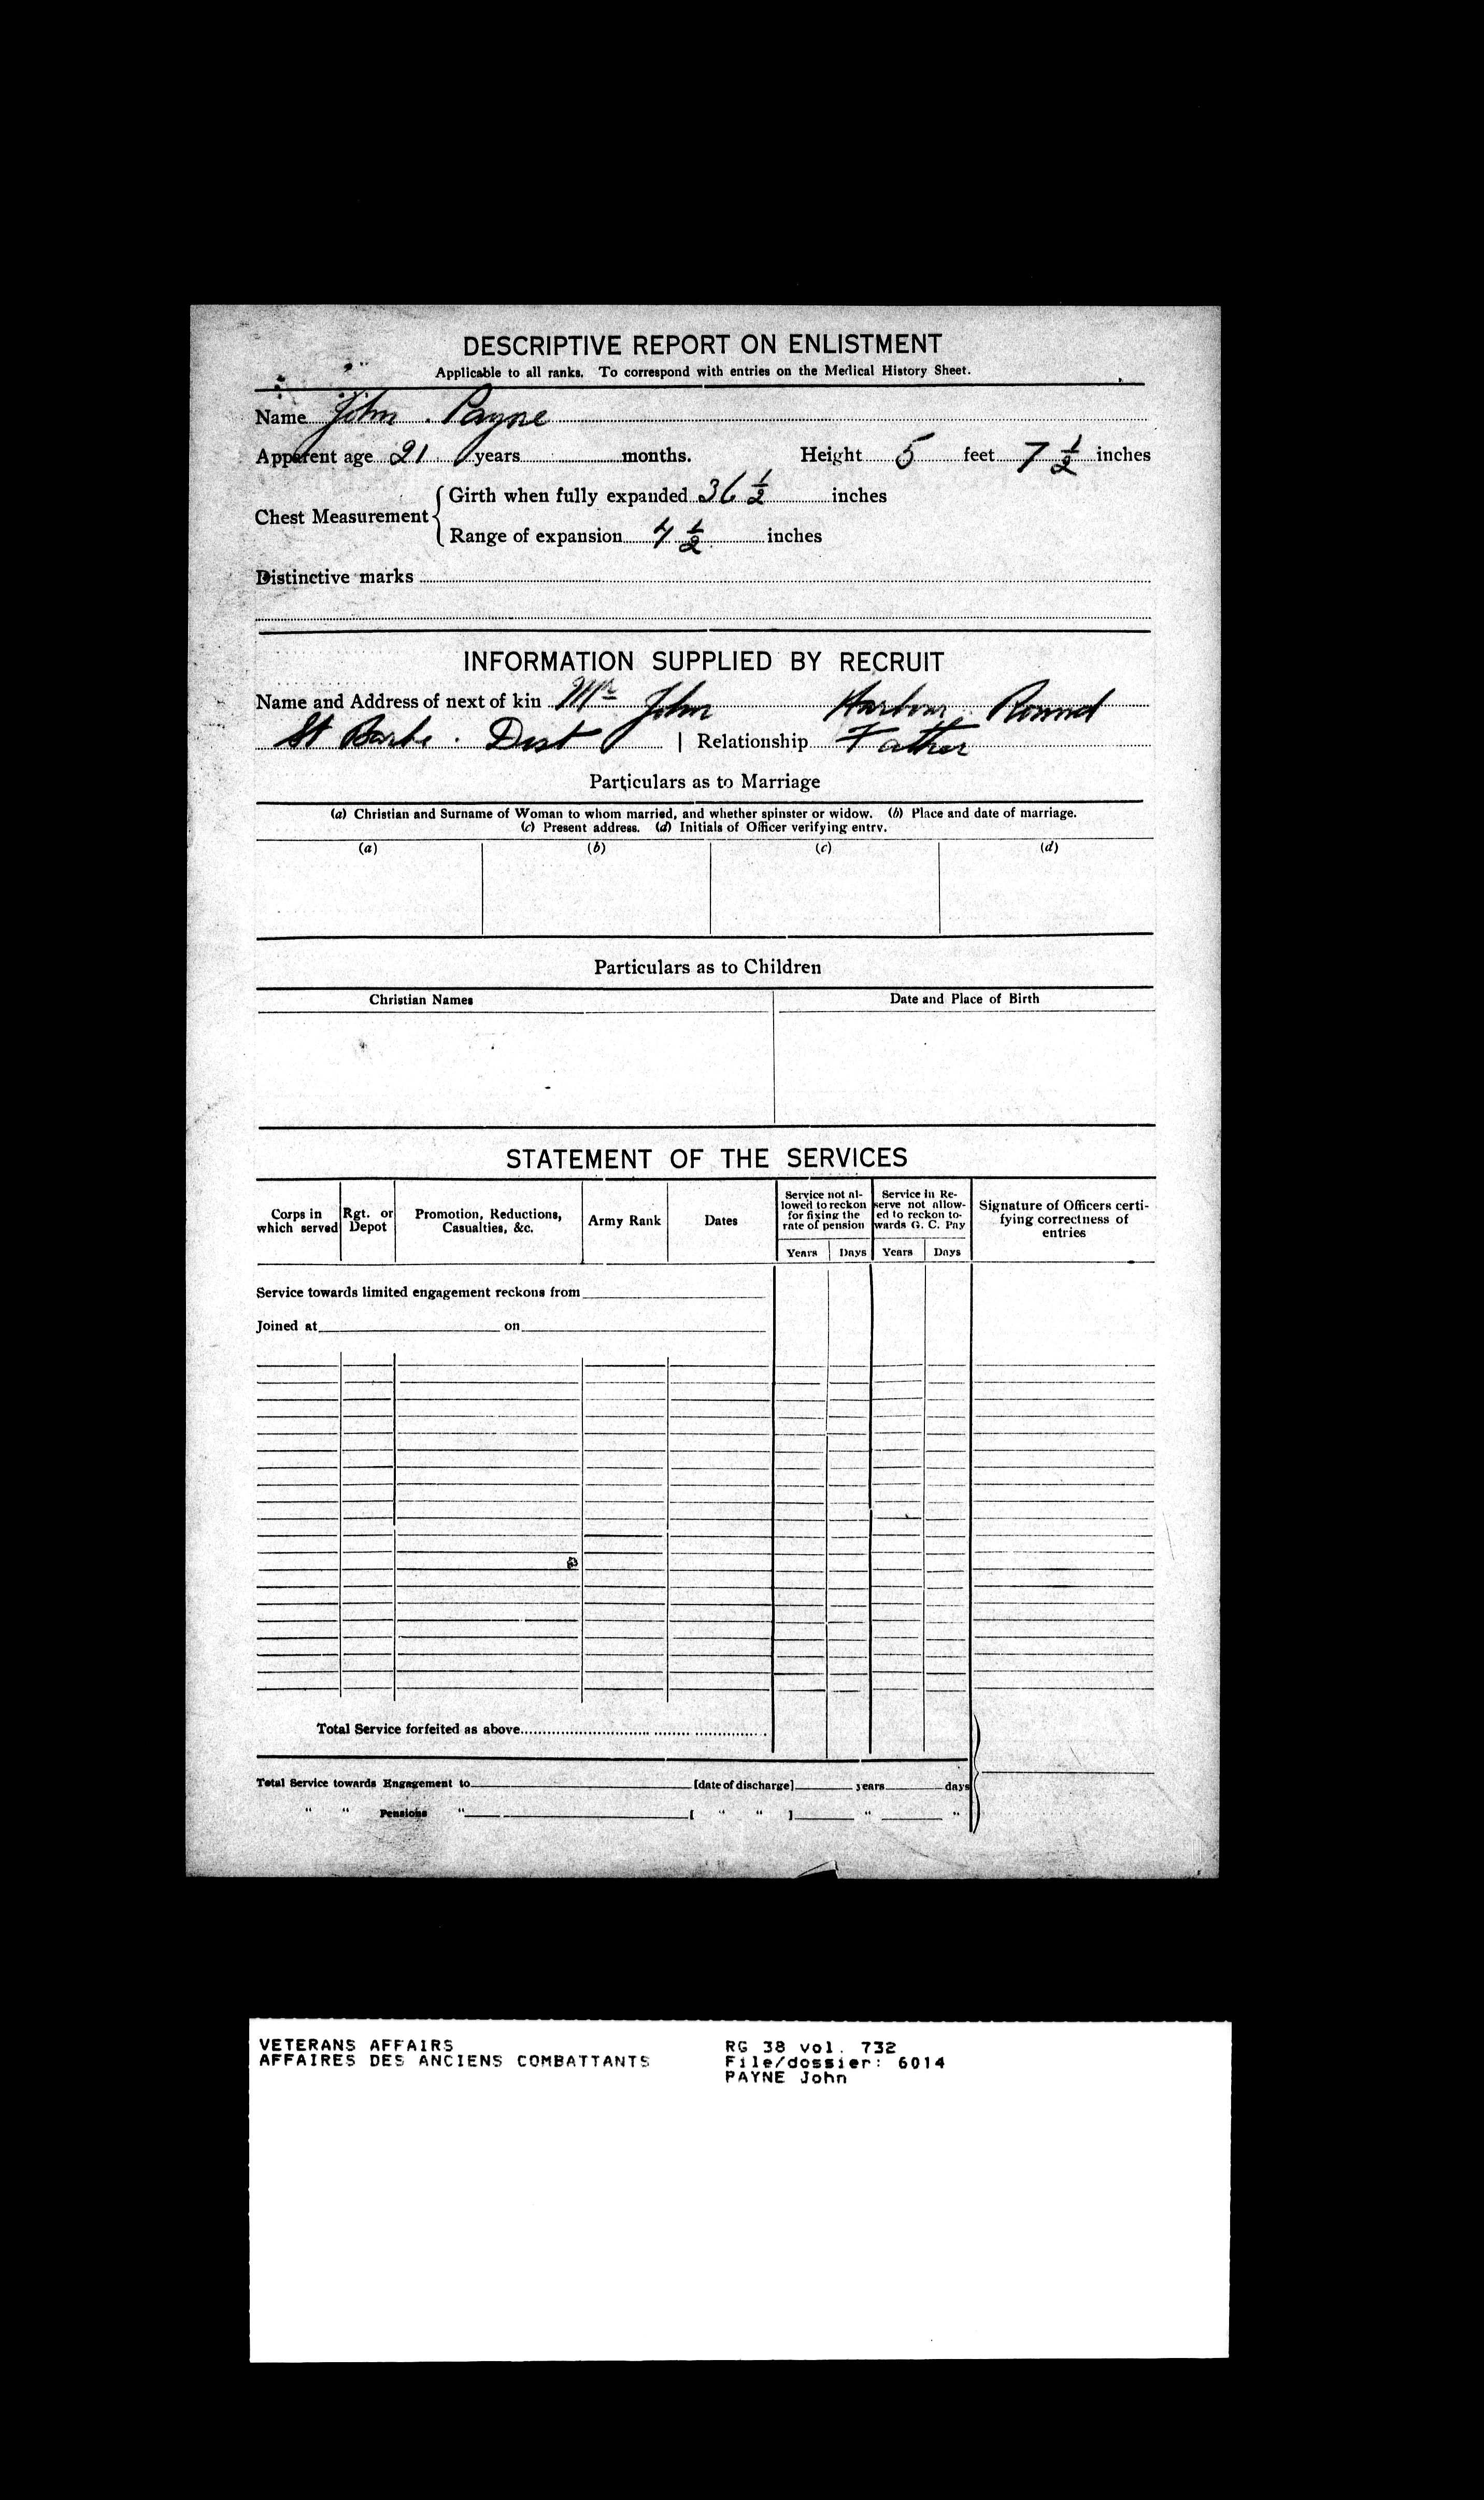 DESCRIPTIVE REPORT ON ENLISTMENT
Applicable to all ranks. To correspond with entries on the Medical History Sheet.
Name John Payne
Apparent age 21 years months. Height 5 feet 7 1/2 inches
Chest Measurement { Girth when fully expanded 36 1/2 inches
Range of expansion 4 1/2 inches
Distinctive marks
INFORMATION SUPPLIED BY RECRUIT
Name and Address of next of kin Mr John Harbour Round
St Barbe . Dist | Relationship Father
Particulars as to Marriage
(a) Christian and Surname of Woman to whom married, and whether spinster or widow. (b) Place and date of marriage.
(c) Present address. (d) Initials of Officer verifying entry.
(a) (b) (c) (d)
Particulars as to Children
Christian Names Date and Place of Birth
STATEMENT OF THE SERVICES
Corps in which served Rgt. or Depot Promotion, Reductions, Casualties, &c. Army Rank Dates Service not allowed to reckon for fixing the rate of pension Service in Reserve not allowed to reckon towards G. C. Pay Signature of Officers certifying correctness of entries
Years Days Years Days
Service towards limited engagement reckons from
Joined at on
Total Service forfeited as above
Total Service towards Engagement to [date of discharge] years days
" " Pensions " [ " " ] " "
VETERANS AFFAIRS RG 38 vol. 732
AFFAIRES DES ANCIENS COMBATTANTS File/dossier: 6014
PAYNE John